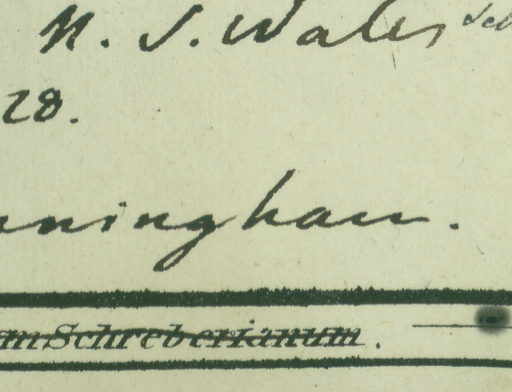 N. S. Wales
28.
nningham.
m Schreberianum.